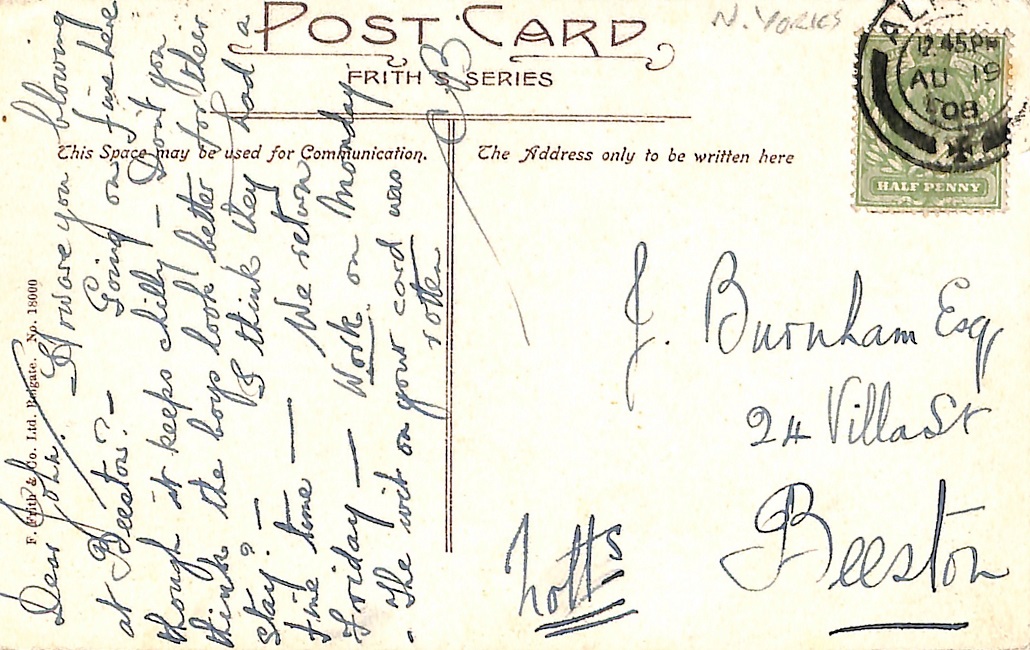 N. YORKS
POST CARD
FRITH'S SERIES
This Space may be used for Communication.
The Address only to be written here
12.45 PM
AU 19
08
HALF PENNY
F. Frith & Co. Ltd. Reigate. No. 18000
Dear John.
How are you blowing
at Beeston? - Going on fine here
though it keeps chilly - Don't you
think the boys look better for their
stay? - I think they had a
fine time — We return
Friday — Work on Monday
- The wit on your card was
rotten
J. Burnham Esq,
24 Villa St
Beeston
Notts